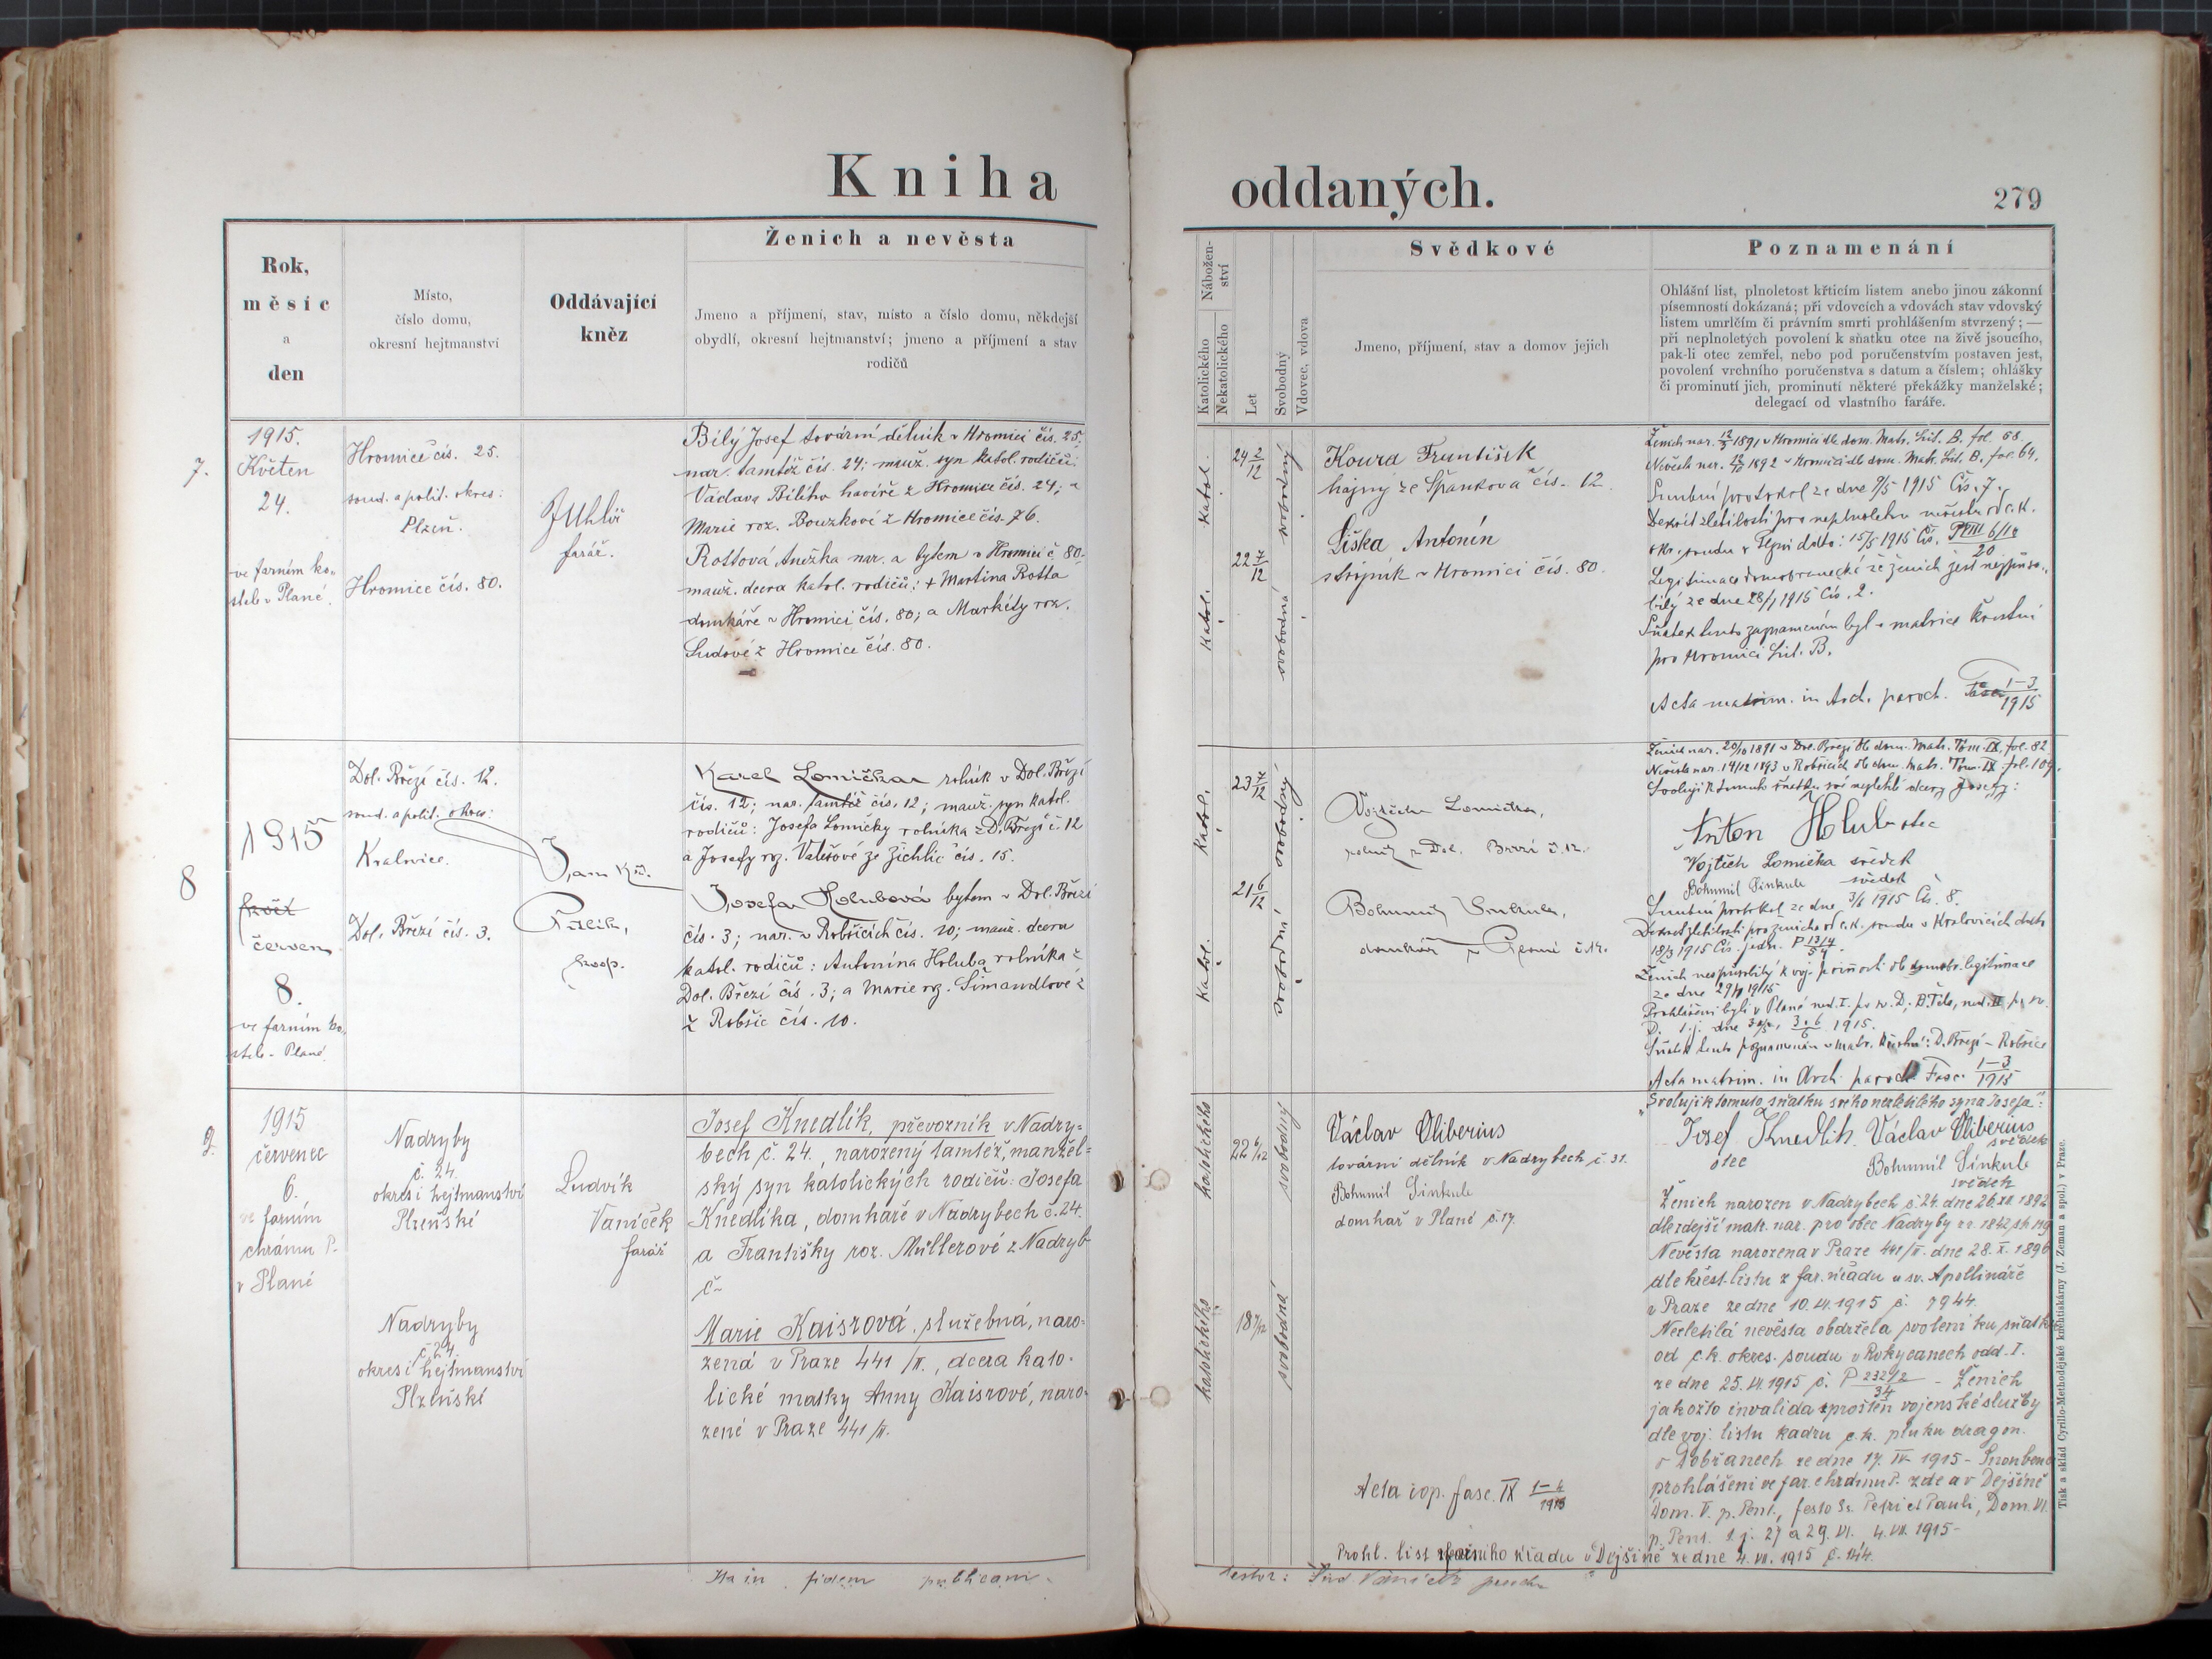 Kniha
oddaných.
279
Rok,
měsíc
a
den
Místo,
číslo domu,
okresní hejtmanství
Oddávající
kněz
Ženich a nevěsta
Jmeno a příjmení, stav, místo a číslo domu, někdejší
obydlí, okresní hejtmanství; jmeno a příjmení a stav
rodičů
Nábožen-
ství
Katolického
Nekatolického
Let
Svobodný
Vdovec, vdova
Svědkové
Jmeno, příjmení, stav a domov jejich
Poznamenání
Ohlášní list, plnoletost křticím listem anebo jinou zákonní
písemností dokázaná; při vdovcích a vdovách stav vdovský
listem umrlčím či právním smrti prohlášením stvrzený; —
při neplnoletých povolení k sňatku otce na živě jsoucího,
pak-li otec zemřel, nebo pod poručenstvím postaven jest,
povolení vrchního poručenstva s datum a číslem; ohlášky
či prominutí jich, prominutí některé překážky manželské;
delegací od vlastního faráře.
7.
1915.
Květen
24.
ve farním ko-
stele v Plané.
Hromice čís. 25.
soud. a polit. okres:
Plzeň.
Hromice čís. 80.
farář.
Bílý Josef tovární dělník v Hromici čís. 25.
nar. tamtéž čís. 24; manž. syn katol. rodičů:
Václava Bílího havíře z Hromice čís. 24; a
Marie roz. Bouzkové z Hromice čís. 76.
Rottová Anežka nar. a bytem v Hromici č. 80.
manž. dcera katol. rodičů: + Martina Rotta
domkáře v Hromici čís. 80; a Markéty roz.
z Hromice čís. 80.
Katol.
24 2/12
svobodný
Katol.
22 7/12
svobodná
Koura František
hajný ze Špankova čís. 12.
Liška Antonín
strojník v Hromici čís. 80.
Ženich nar. 1891 v Hromici dle dom. Matr. Lit. B. fol. 68.
Nevěsta nar. 1892 v Hromici dle dom. Matr. Lit. B. fol. 64.
Snubní protokol ze dne 9/5 1915 Čís. 7.
Dekret zletilosti pro neplnoletou nevěstu od c.k.
okr. soudu v Plzni ddto: 15/5 1915 Čís.
Legitimace domobranecká že ženich jest
ze dne 28/1 1915 Čís. 2.
Sňatek tento zapamenán byl v matrice křestní
pro Hromici Lit. B.
Acta matrim. in Arch. paroch. Fasc 1-3/1915
8
1915
červen
8.
ve farním ko-
stele v Plané.
Dol. Březí čís. 12.
soud. a polit. okres:
Kralovice.
Dol. Březí čís. 3.
Jan Kř.
koop.
Karel Lomička rolník v Dol. Březí
čís. 12; nar. tamtéž čís. 12; manž. syn katol.
rodičů: Josefa Lomičky rolníka z D. Březí č. 12
a Josefy rz. Valešové ze Žichlic čís. 15.
Josefa Holubová bytem v Dol. Březí
čís. 3; nar. v Robšicích čís. 10; manž. dcera
katol. rodičů: Antonína Holuba rolníka z
Dol. Březí čís. 3; a Marie rz. Šimandlové z
z Robšic čís. 10.
Katol.
23 7/12
svobodný
Katol.
21 6/12
svobodná
Vojtěch Lomička,
rolník z Dol. Březí č. 12.
Bohumil Sinkule,
domkář
Ženich nar. 20/10 1891 v Dol. Březí dle dom. Matr. Tom. IX. fol. 82
Nevěsta nar. 14/12 1893 v Robšicích dle dom. Matr. Tom. IX. fol. 109.
Svoluji k tomuto sňatku své nezletilé dcery Josefy:
Anton Holub otec
Vojtěch Lomička svědek
Bohumil Sinkule svědek
Snubní protokol ze dne 3/6 1915 Čís. 8.
Dekret zletilosti pro ženicha od c.k. soudu v Kralovicích ddto
18/3 1915 Čís. jedn. P 13/14
ze dne 1915
Prohlášeni byli v Plané ned. I. po sv. D., B. Těla, ned. II. po sv.
D. t. j. dne 30/5, 3. 6. 1915.
Sňatek tento poznamenán v matr. křestní: D. Březí - Robšice
Acta matrim. in Arch. paroch. Fasc. 1-3/1915
9.
1915
červenec
6.
ve farním
chrámu P.
v Plané
Nadryby
č. 24.
okresí hejtmanství
Plzeňské
Nadryby
č. 24.
okresí hejtmanství
Plzeňské
Ludvík
Vaníček
farář
Josef Knedlík, převozník v Nadry-
bech č. 24., narozený tamtéž, manžel-
ský syn katolických rodičů: Josefa
Knedlíka, domkáře v Nadrybech č. 24.
a Františky roz. Müllerové z Nadryb
č.
Marie Kaiszová, služebná, naro-
zená v Praze 441/II., dcera kato-
lické matky Anny Kaiszové, naro-
zené v Praze 441/II.
katolického
22 6/12
svobodný
katolického
svobodná
Václav Oliberius
tovární dělník v Nadrybech č. 31.
Bohumil Sinkule
domkař v Plané č. 17.
Acta cop. fasc. IX 1-4/1915
"Svoluji k tomuto sňatku svého nezletilého syna Josefa":
Josef Knedlík Václav Oliberius
otec svědek
Bohumil Sinkule
svědek
Ženich narozen v Nadrybech č. 24. dne 26. XII. 1892
dle zdejší matr. nar. pro obec Nadryby
Nevěsta narozena v Praze 441/II. dne 28. X. 1896
dle křest. listu z far. úřadu u sv. Apollináře
v Praze ze dne 10. VI. 1915 č. 7944.
Nezletilá nevěsta obdržela svolení ku sňatku
od c.k. okres. soudu v Rokycanech odd. I.
ze dne 25. VI. 1915 č. P 232/2/34 - Ženich
jakožto invalida sproštěn vojenské služby
dle voj. listu kadru c.k. pluku dragon.
v Dobřanech ze dne 17. IV. 1915 - Snoubenci
prohlášeni ve far. chrámu P. zde a v Dejšině
Dom. V. p. Pent., festo Ss. Petri et Pauli, Dom. VI.
p. Pent. t. j. 27 a 29. VI. 4. VII. 1915-
Prohl. list farního úřadu v Dejšině ze dne 4. VII. 1915 č. 144.
Ita in fidem publicam
testor: Lud. Vaníček
Tisk a sklad Cyrillo-Methodějské knihtiskárny (J. Zeman a spol.) v Praze.